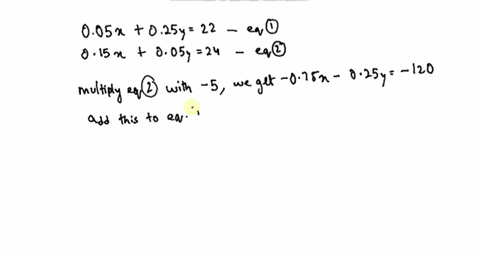 0.05x + 0.25y = 22 — eq①
0.15x + 0.05y = 24 — eq②
multiply eq② with -5, we get -0.75x - 0.25y = -120
add this to eq.